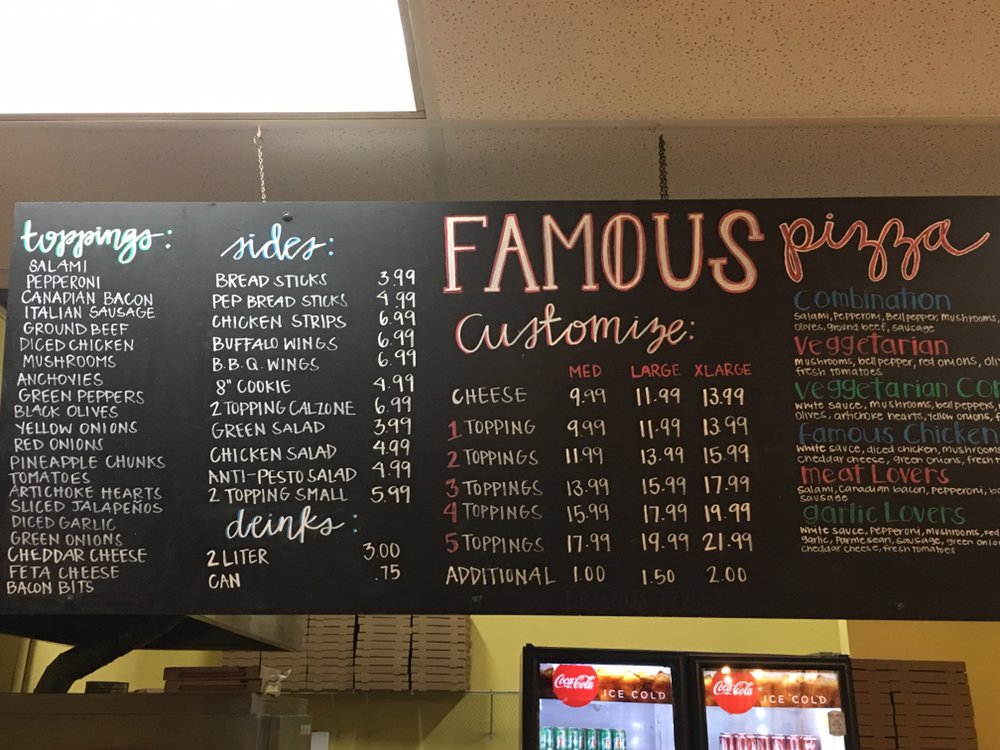 toppings:
SALAMI
PEPPERONI
CANADIAN BACON
ITALIAN SAUSAGE
GROUND BEEF
DICED CHICKEN
MUSHROOMS
ANCHOVIES
GREEN PEPPERS
BLACK OLIVES
YELLOW ONIONS
RED ONIONS
PINEAPPLE CHUNKS
TOMATOES
ARTICHOKE HEARTS
SLICED JALAPEÑOS
DICED GARLIC
GREEN ONIONS
CHEDDAR CHEESE
FETA CHEESE
BACON BITS
sides:
BREAD STICKS 3.99
PEP BREAD STICKS 4.99
CHICKEN STRIPS 6.99
BUFFALO WINGS 6.99
B.B.Q. WINGS 6.99
8" COOKIE 4.99
2 TOPPING CALZONE 6.99
GREEN SALAD 3.99
CHICKEN SALAD 4.99
ANTI-PESTO SALAD 4.99
2 TOPPING SMALL 5.99
drinks:
2 LITER 3.00
CAN .75
FAMOUS pizza
customize:
MED LARGE XLARGE
CHEESE 9.99 11.99 13.99
1 TOPPING 9.99 11.99 13.99
2 TOPPINGS 11.99 13.99 15.99
3 TOPPINGS 13.99 15.99 17.99
4 TOPPINGS 15.99 17.99 19.99
5 TOPPINGS 17.99 19.99 21.99
ADDITIONAL 1.00 1.50 2.00
Combination
Salami, Pepperoni, Bell pepper, mushrooms,
olives, ground beef, sausage
Veggetarian
mushrooms, bell pepper, red onions,
fresh tomatoes
Veggetarian
white sauce, mushrooms, bell peppers,
olives, artichoke hearts, yellow onions,
Famous Chicken
white sauce, diced chicken, mushrooms
cheddar cheese, green onions, fresh
meat Lovers
Salami, Canadian bacon, Pepperoni,
sausage
garlic Lovers
White sauce, Pepperoni, mushrooms, red
garlic, Parmesean, sausage, green
cheddar cheese, fresh tomatoes
Coca-Cola ICE COLD
Coca-Cola ICE COLD